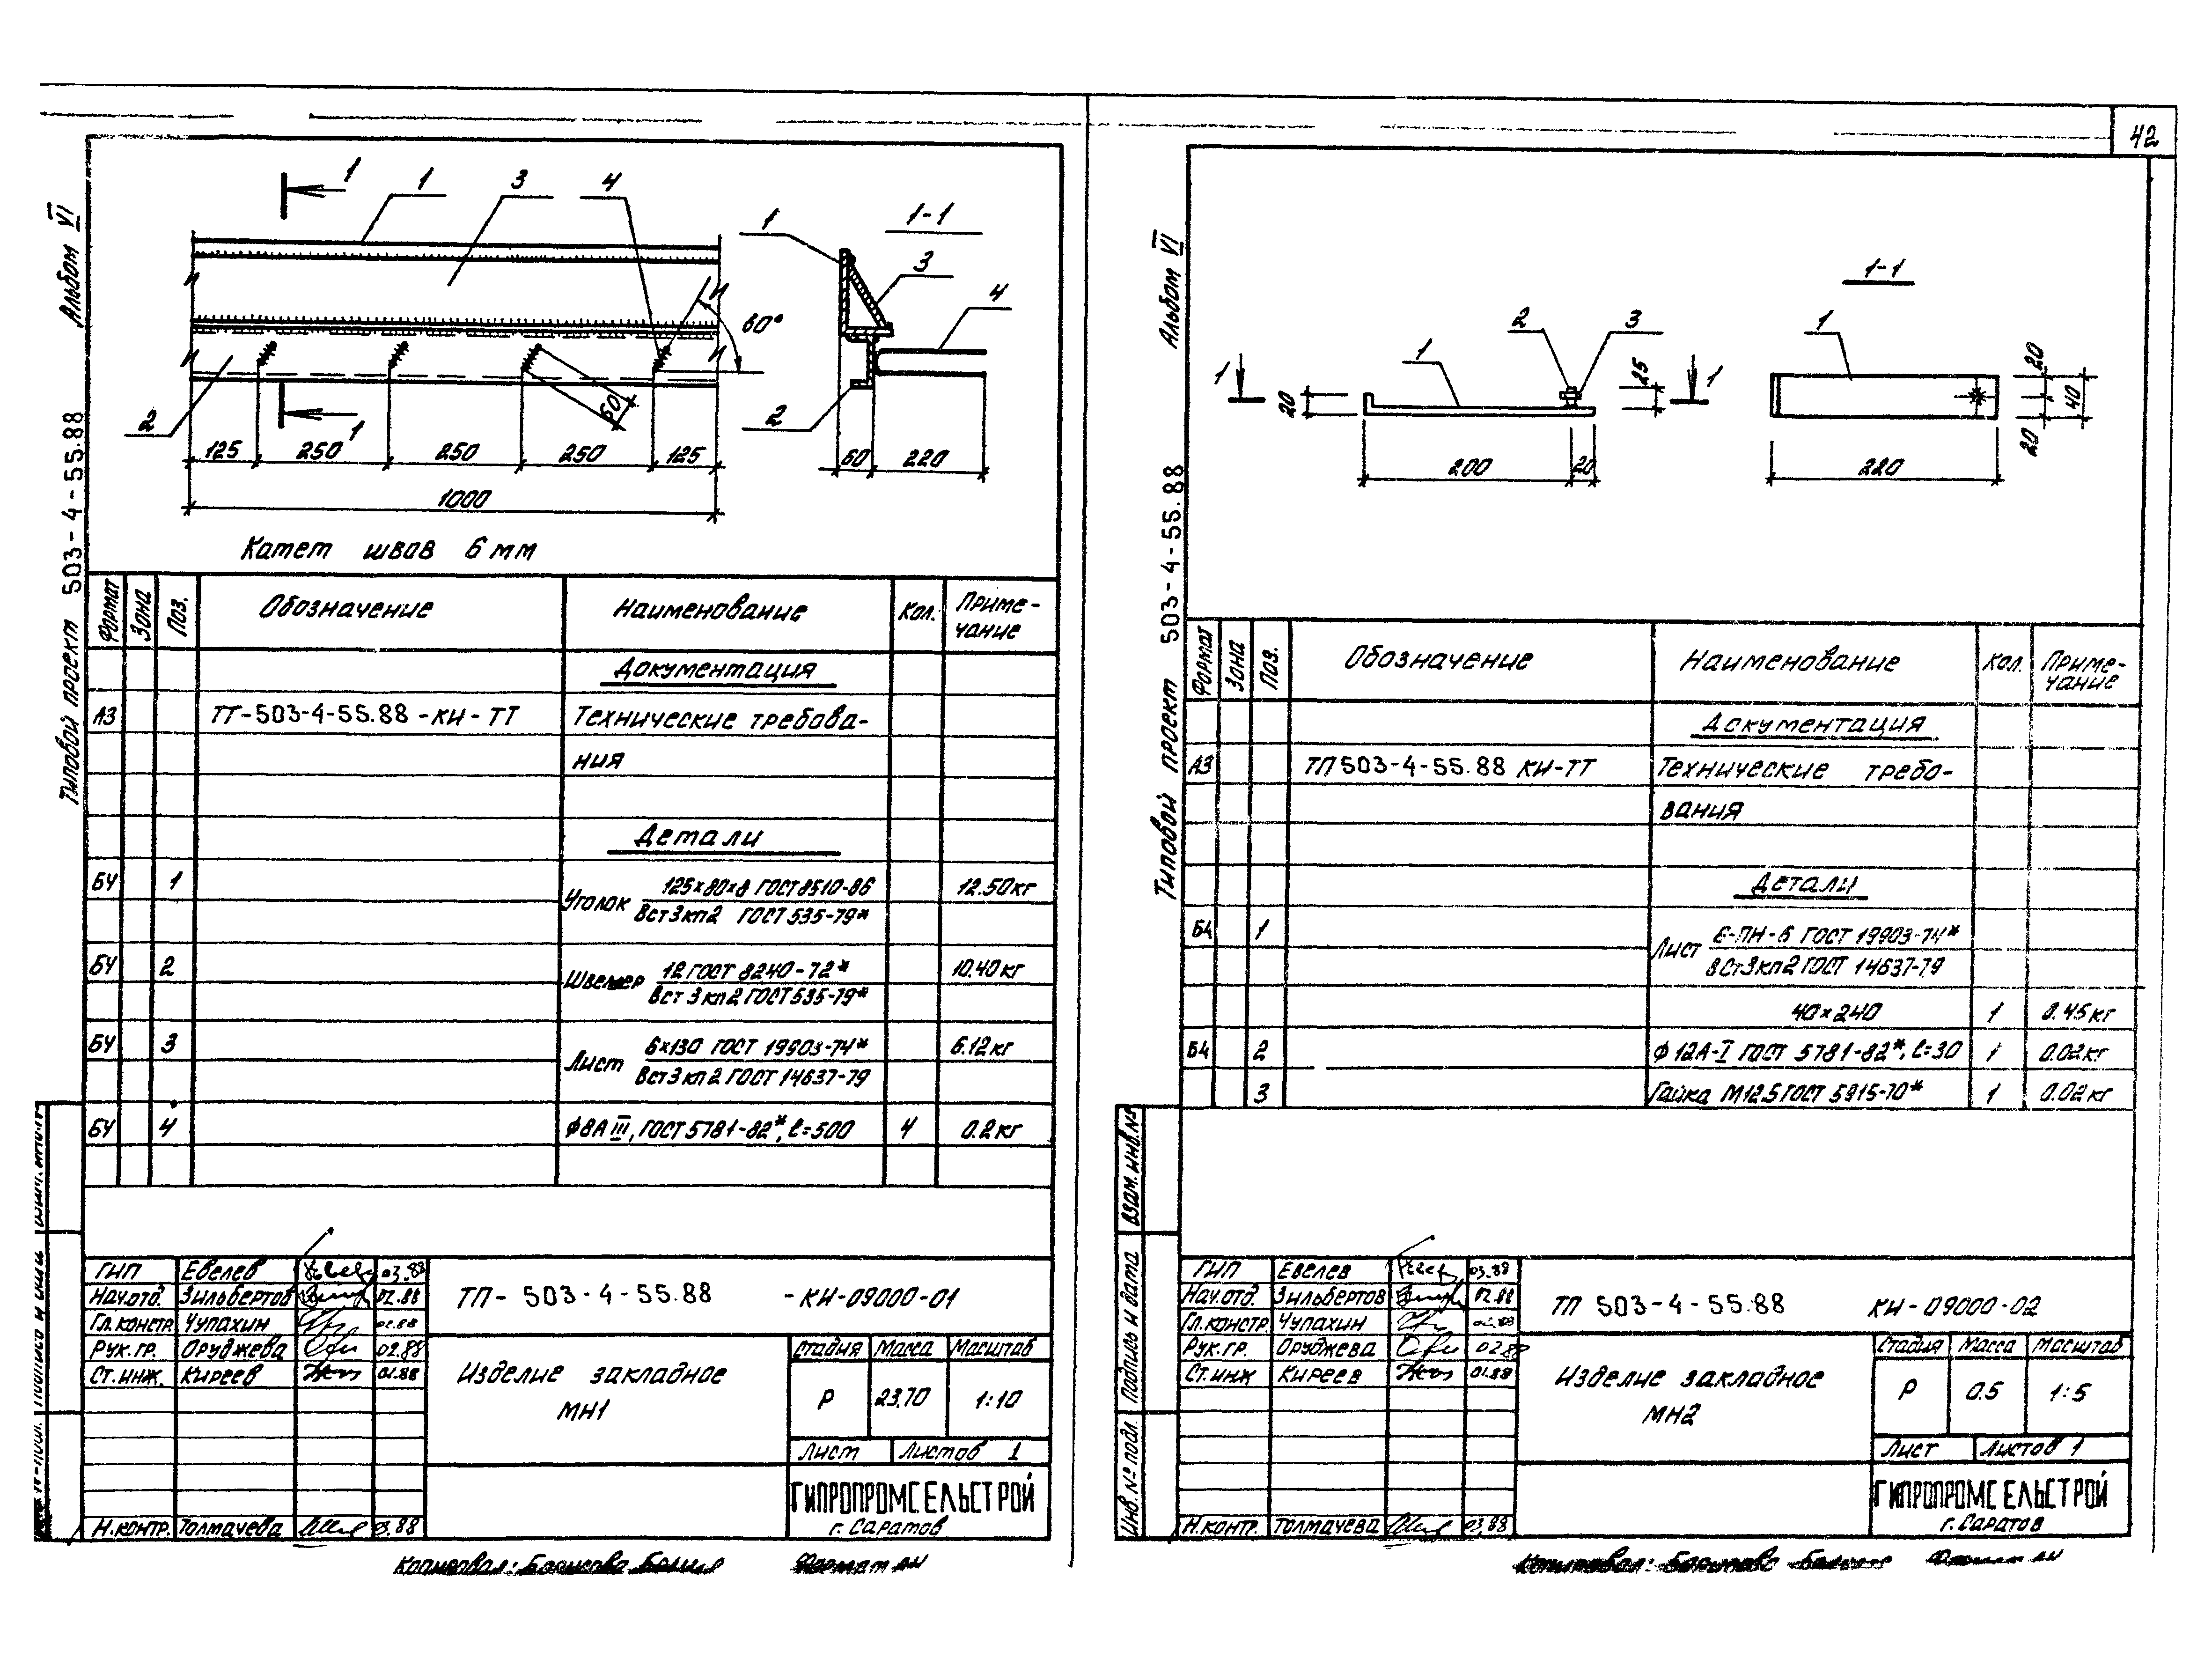 42
Альбом VI
Типовой проект 503-4-55.88
1
1
3
4
1
1-1
3
4
60°
2
60
1
2
125
250
250
250
125
60
220
1000
Катет швов 6 мм
Формат
Зона
Поз.
Обозначение
Наименование
Кол.
Приме-
чание
Документация
А3
ТТ-503-4-55.88-КИ-ТТ
Технические требова-
ния
Детали
БЧ
1
Уголок
125×80×8 ГОСТ 8510-86
Вст3кп2 ГОСТ 535-79*
12.50кг
БЧ
2
Швеллер
12 ГОСТ 8240-72*
Вст3кп2 ГОСТ 535-79*
10.40кг
БЧ
3
Лист
6×130 ГОСТ 19903-74*
Вст3кп2 ГОСТ 14637-79
6.12кг
БЧ
4
ф8АIII, ГОСТ 5781-82*, ℓ=500
4
0.2кг
ГИП Евелев 03.88
Нач.отд. Зильбертов 02.88
Гл.констр. Чупахин 02.88
Рук.гр. Оруджева 02.88
Ст.инж. Киреев 01.88
Н.контр. Толмачева 03.88
ТП- 503-4-55.88 -КИ-09000-01
Изделие закладное
МН1
Стадия Масса Масштаб
Р 23.70 1:10
Лист Листов 1
ГИПРОПРОМСЕЛЬСТРОЙ
г. Саратов
Копировал:
Формат
Альбом VI
Типовой проект 503-4-55.88
1-1
2
3
1
1
1
1
20
25
200
20
20
40
20
220
Формат
Зона
Поз.
Обозначение
Наименование
Кол.
Приме-
чание
Документация
А3
ТП 503-4-55.88 КИ-ТТ
Технические требо-
вания
Детали
Б4
1
Лист
6-ПН-6 ГОСТ 19903-74*
ВСт3кп2 ГОСТ 14637-79
40×240
1
0.45кг
Б4
2
ф12А-I ГОСТ 5781-82*, ℓ=30
1
0.02кг
3
Гайка М12.5 ГОСТ 5915-70*
1
0.02кг
Взам. инв. №
Подпись и дата
Инв. № подл.
ГИП Евелев 03.88
Нач.отд. Зильбертов 02.88
Гл.констр. Чупахин 02.88
Рук.гр. Оруджева 02.88
Ст.инж Киреев 01.88
Н.контр. Толмачева 03.88
ТП 503-4-55.88 КИ-09000-02
Изделие закладное
МН2
Стадия Масса Масштаб
Р 0.5 1:5
Лист Листов 1
ГИПРОПРОМСЕЛЬСТРОЙ
г. Саратов
Копировал: